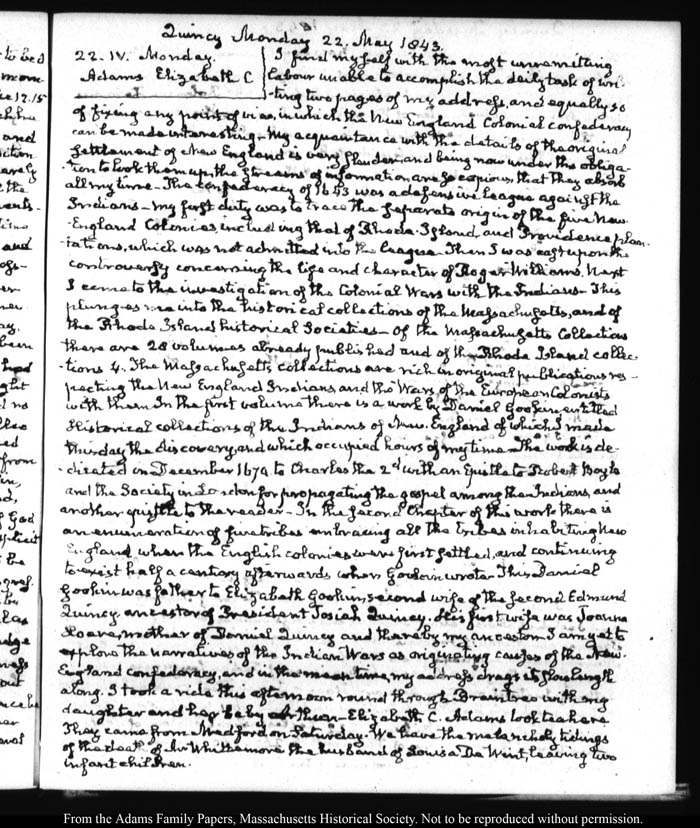 Quincy Monday 22. May 1843.
22. IV. Monday.
Adams Elizabeth C
I find myself with the most unremitting
labour unable to accomplish the daily task of wri-
-ting two pages of my address, and equally so
of fixing any point of view, in which the New England Colonial confederacy
can be made interesting - My acquaintance with the details of the original
settlement of New England is very slender and being now under the obliga-
-tion to look them up, the streams of information are so copious, that they absorb
all my time - The confederacy of 1643 was a defensive League against the
Indians - my first duty was to trace the separate origin of the five New-
-England Colonies, including that of Rhode-Island, and Providence plan-
-tations, which was not admitted into the league - Then I was cast upon the
controversy concerning the life and character of Roger Williams. Next
I came to the investigation of the Colonial Wars with the Indians - This
plunges me into the historical collections of the Massachusetts, and of
the Rhode Island historical Societies - Of the Massachusetts Collections
there are 28 volumes already published and of the Rhode Island collec-
-tions 4. The Massachusetts Collections are rich in original publications res-
-pecting the New England Indians, and the Wars of the European Colonists
with them. In the first volume there is a work by Daniel Gookin, entitled
Historical collections of the Indians of New-England of which I made
this day the discovery, and which occupied hours of my time - The work is de-
-dicated in December 1674 to Charles the 2d with an Epistle to Robert Boyle
and the Society in London for propagating the gospel among the Indians, and
another epistle to the reader - In the second Chapter of this work there is
an enumeration of five tribes embracing all the Tribes inhabiting New
England, when the English colonies were first settled, and continuing
to exist half a century afterwards when Gookin wrote. This Daniel
Gookin was father to Elizabeth Gookin, second wife of the second Edmund
Quincy, ancestor of President Josiah Quincy. His first wife was Joanna
Hoare, mother of Daniel Quincy and thereby my ancestor. I am yet to
explore the narratives of the Indian Wars as originating causes of the New-
England confederacy, and in the mean time, my address drags its slow length
along. I took a ride this afternoon round through Braintree with my
daughter and her baby Arthur - Elizabeth C. Adams took tea here
They came from Medford on Saturday. We have the melancholy tidings
of the death of Mr Whittemore the husband of Louisa De Wint, leaving two
infant children.
From the Adams Family Papers, Massachusetts Historical Society. Not to be reproduced without permission.